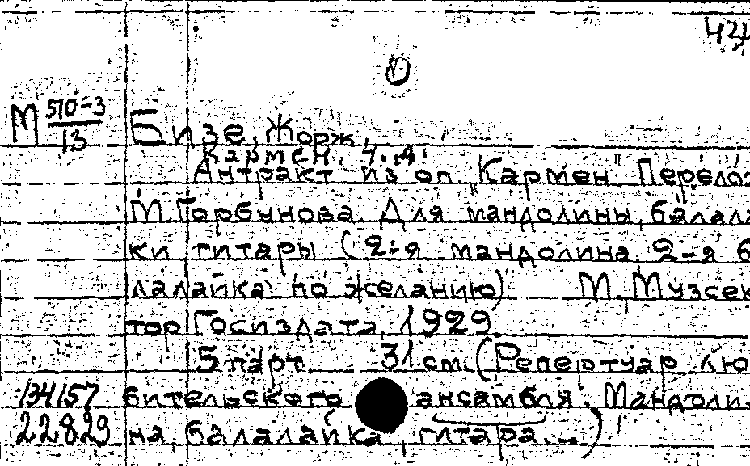 О
М 510-3/13
Бизе, Жорж.
Кармен. Ч.А.
Антракт из оп. "Кармен" Перелож
М. Горбунова. Для мандолины, балала
ки гитары (2-я мандолина 2-я б
лалайка по желанию) М. Музсек
тор Госиздата 1929
5 парт. 31 см. (Репертуар лю
134157 бительского ансамбля. Мандоли
22829 на, балалайка, гитара...)